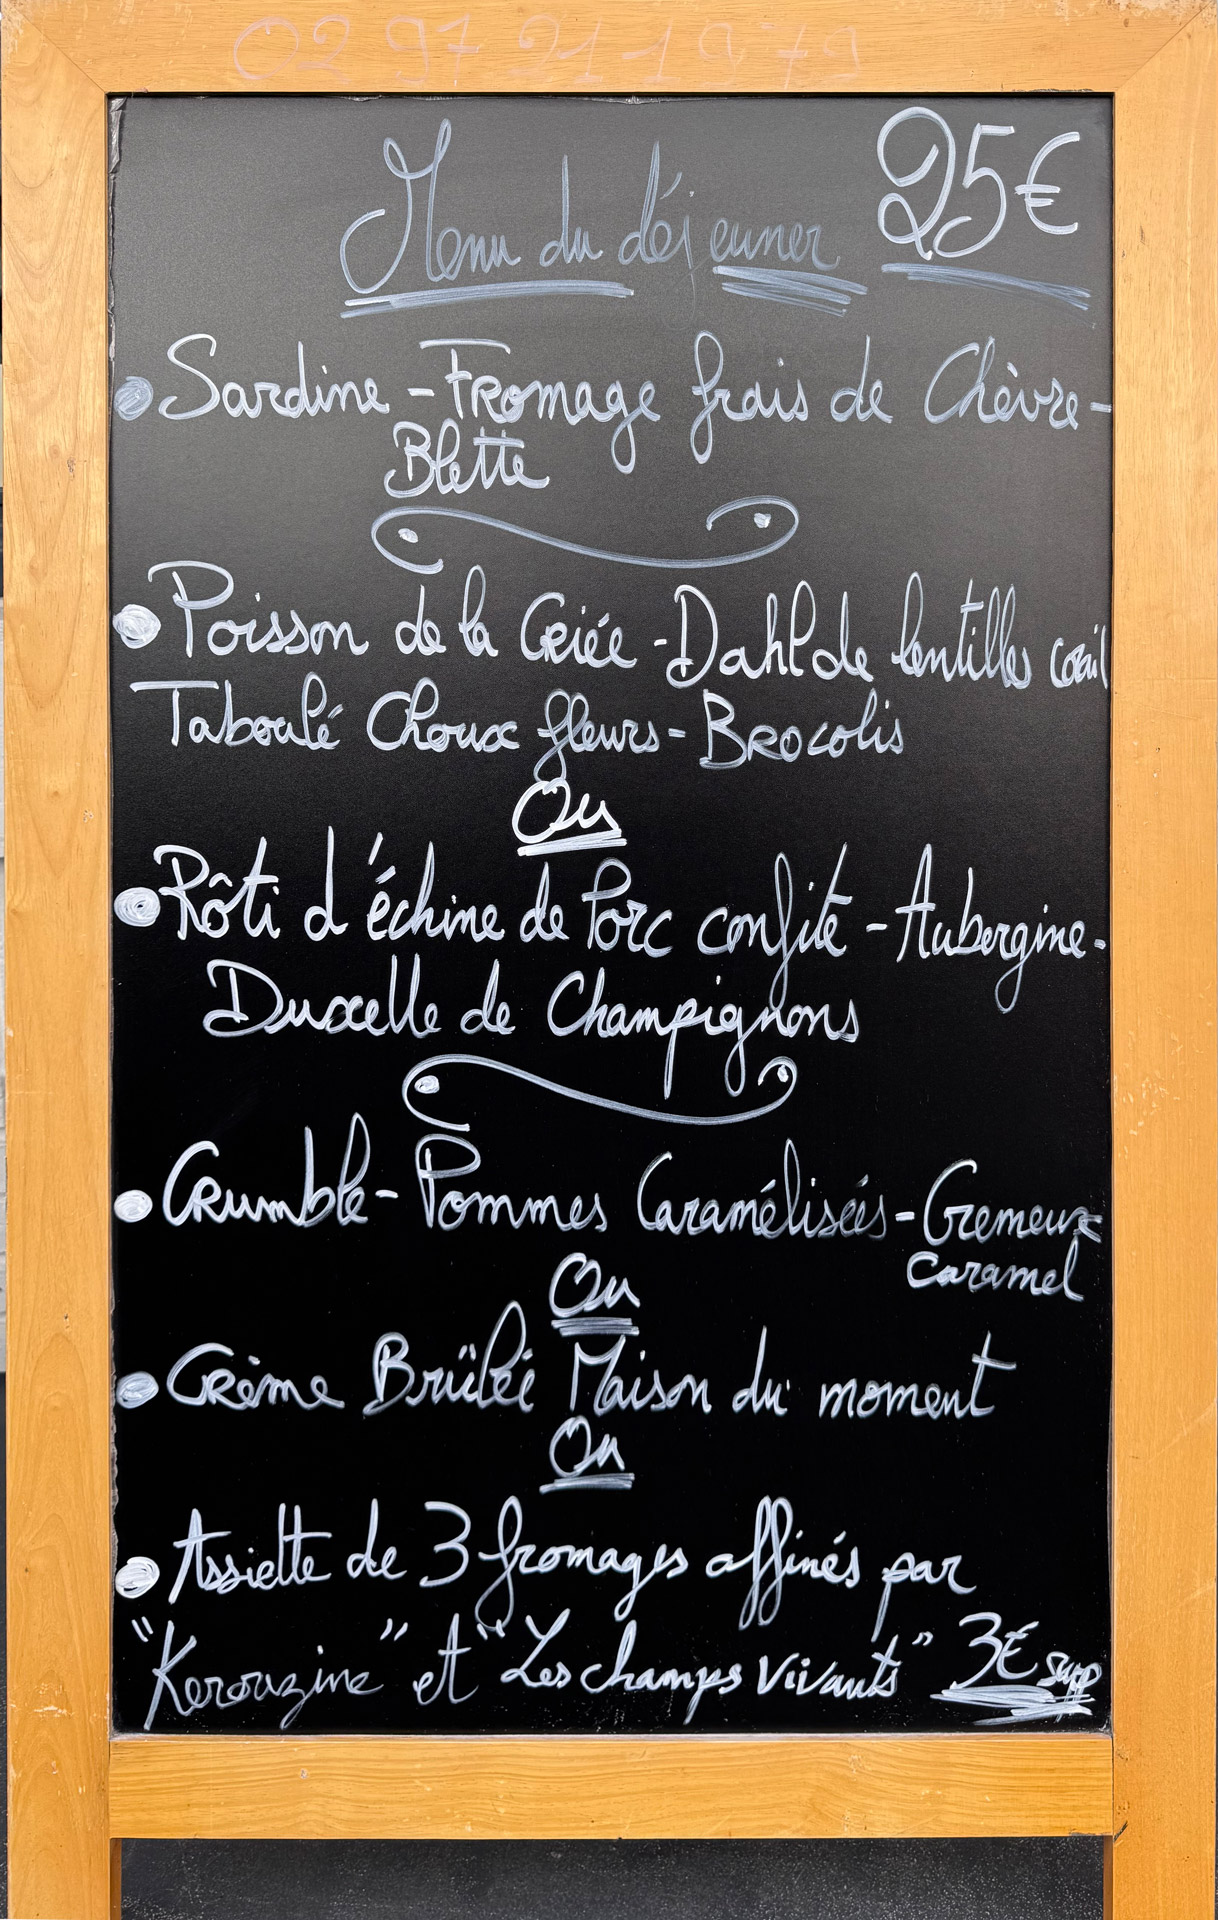 02 97 21 19 79
Menu du déjeuner 25€
Sardine - Fromage frais de Chèvre -
Blette
Poisson de la Criée - Dahl de lentilles corail
Taboulé Choux fleurs - Brocolis
Ou
Rôti d'échine de Porc confite - Aubergine -
Duxelle de Champignons
Crumble - Pommes Caramélisées - Crémeux
caramel
Ou
Crème Brûlée Maison du moment
Ou
Assiette de 3 fromages affinés par
"Kerouzine" et "Les champs vivants" 3€ supp